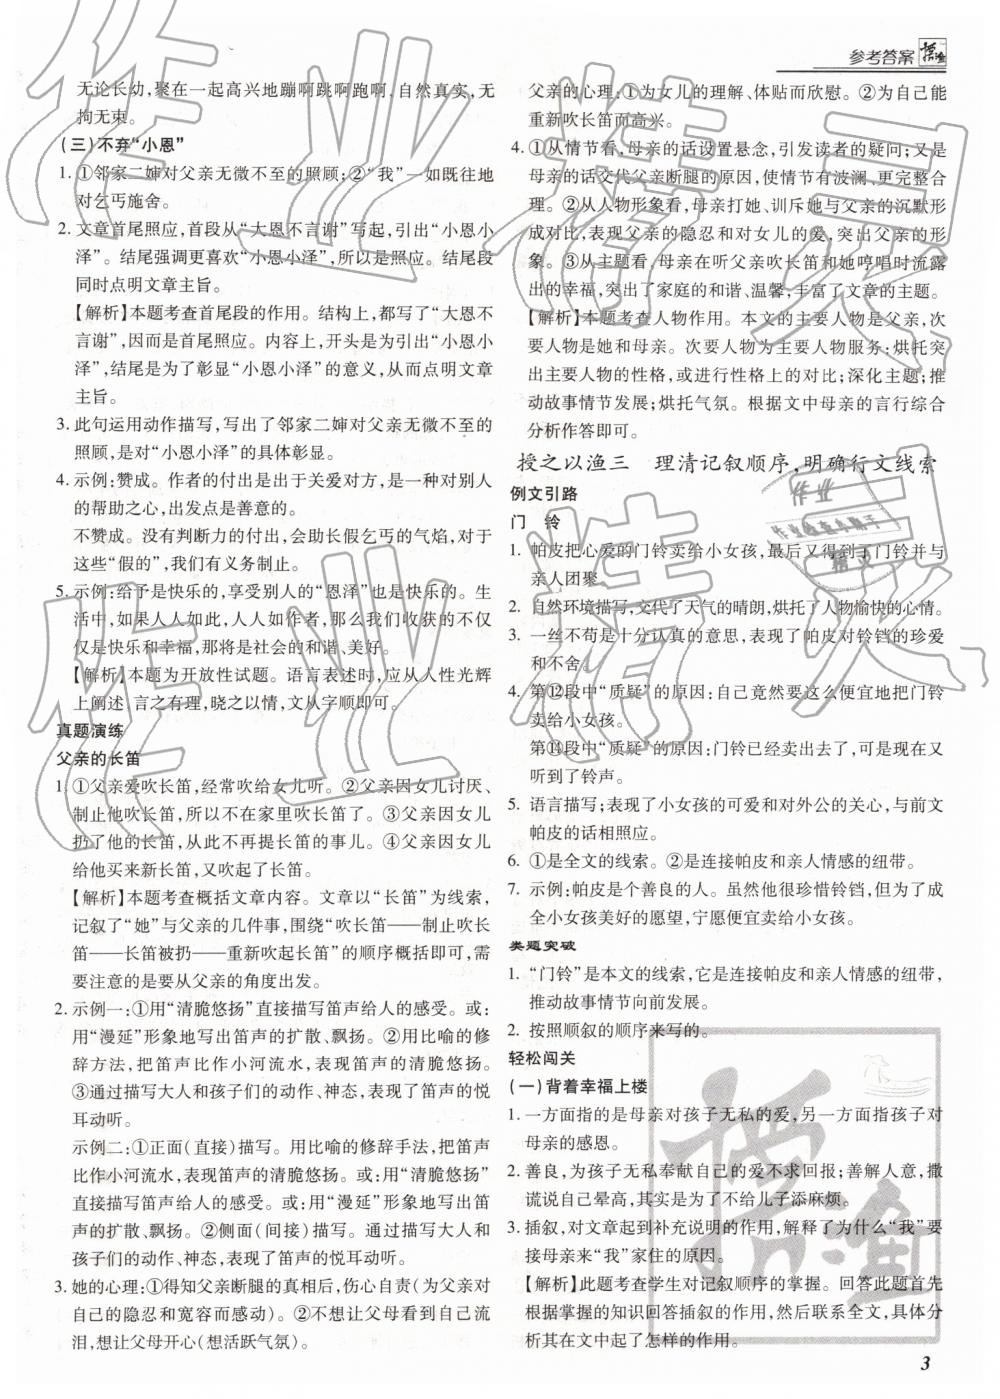 参考答案
无论长幼,聚在一起高兴地蹦啊跳啊跑啊,自然真实,无
拘无束。
(三)不弃“小恩”
1. ①邻家二婶对父亲无微不至的照顾;②“我”一如既往地
对乞丐施舍。
2. 文章首尾照应,首段从“大恩不言谢”写起,引出“小恩小
泽”。结尾强调更喜欢“小恩小泽”,所以是照应。结尾段
同时点明文章主旨。
【解析】本题考查首尾段的作用。结构上,都写了“大恩不
言谢”,因而是首尾照应。内容上,开头是为引出“小恩小
泽”,结尾是为了彰显“小恩小泽”的意义,从而点明文章
主旨。
3. 此句运用动作描写,写出了邻家二婶对父亲无微不至的
照顾,是对“小恩小泽”的具体彰显。
4. 示例:赞成。作者的付出是出于关爱对方,是一种对别人
的帮助之心,出发点是善意的。
不赞成。没有判断力的付出,会助长假乞丐的气焰,对于
这些“假的”,我们有义务制止。
5. 示例:给予是快乐的,享受别人的“恩泽”也是快乐的。生
活中,如果人人如此,人人如作者,那么我们收获的不仅
仅是快乐和幸福,那将是社会的和谐、美好。
【解析】本题为开放性试题。语言表述时,应从人性光辉
上阐述,言之有理,晓之以情,文从字顺即可。
真题演练
父亲的长笛
1. ①父亲爱吹长笛,经常吹给女儿听。②父亲因女儿讨厌、
制止他吹长笛,所以不在家里吹长笛了。③父亲因女儿
扔了他的长笛,从此不再提长笛的事儿。④父亲因女儿
给他买来新长笛,又吹起了长笛。
【解析】本题考查概括文章内容。文章以“长笛”为线索,
记叙了“她”与父亲的几件事,围绕“吹长笛——制止吹长
笛——长笛被扔——重新吹起长笛”的顺序概括即可,需
要注意的是要从父亲的角度出发。
2. 示例一:①用“清脆悠扬”直接描写笛声给人的感受。或:
用“漫延”形象地写出笛声的扩散、飘扬。②用比喻的修
辞方法,把笛声比作小河流水,表现笛声的清脆悠扬。
③通过描写大人和孩子们的动作、神态,表现了笛声的悦
耳动听。
示例二:①正面(直接)描写。用比喻的修辞手法,把笛声
比作小河流水,表现笛声的清脆悠扬。或:用“清脆悠扬”
直接描写笛声给人的感受。或:用“漫延”形象地写出笛声
的扩散、飘扬。②侧面(间接)描写。通过描写大人和
孩子们的动作、神态,表现了笛声的悦耳动听。
3. 她的心理:①得知父亲断腿的真相后,伤心自责(为父亲对
自己的隐忍和宽容而感动)。②不想让父母看到自己流
泪,想让父母开心(想活跃气氛)。
父亲的心理:①为女儿的理解、体贴而欣慰。②为自己能
重新吹长笛而高兴。
4. ①从情节看,母亲的话设置悬念,引发读者的疑问;又是
母亲的话交代父亲断腿的原因,使情节有波澜、更完整合
理。②从人物形象看,母亲打她、训斥她与父亲的沉默形
成对比,表现父亲的隐忍和对女儿的爱,突出父亲人物形
象。③从主题看,母亲在听父亲吹长笛和她哼唱时流露
出的幸福,突出了家庭的和谐、温馨,丰富了文章的主题。
【解析】本题考查人物作用。本文的主要人物是父亲,次
要人物是她和母亲。次要人物为主要人物服务:烘托突
出主要人物的性格,或进行性格上的对比;深化主题;推
动故事情节发展;烘托气氛。根据文中母亲的言行综合
分析作答即可。
授之以渔三 理清记叙顺序,明确行文线索
例文引路
门 铃
1. 帕皮把心爱的门铃卖给小女孩,最后又得到了门铃并与
亲人团聚。
2. 自然环境描写,交代了天气的晴朗,烘托了人物愉快的心情。
3. 一丝不苟是十分认真的意思,表现了帕皮对铃铛的珍爱
和不舍。
4. 第⑫段中“质疑”的原因:自己竟然要这么便宜地把门铃
卖给小女孩。
第⑭段中“质疑”的原因:门铃已经卖出去了,可是现在又
听到了铃声。
5. 语言描写;表现了小女孩的可爱和对外公的关心,与前文
帕皮的话相照应。
6. ①是全文的线索。②是连接帕皮和亲人情感的纽带。
7. 示例:帕皮是个善良的人。虽然他很珍惜铃铛,但为了成
全小女孩美好的愿望,宁愿便宜卖给小女孩。
类题突破
1. “门铃”是本文的线索,它是连接帕皮和亲人情感的纽带,
推动故事情节向前发展。
2. 按照顺叙的顺序来写的。
轻松闯关
(一)背着幸福上楼
1. 一方面指的是母亲对孩子无私的爱,另一方面指孩子对
母亲的感恩。
2. 善良,为孩子无私奉献自己的爱不求回报;善解人意,撒
谎说自己晕高,其实是为了不给儿子添麻烦。
3. 插叙,对文章起到补充说明的作用,解释了为什么“我”要
接母亲来“我”家住的原因。
【解析】此题考查学生对记叙顺序的掌握。回答此题首先
根据掌握的知识回答插叙的作用,然后联系全文,具体分
析其在文中起了怎样的作用。
3
作业精灵